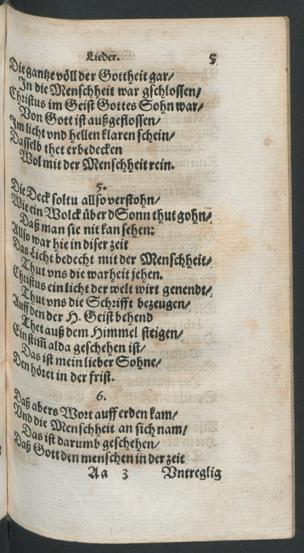 Lieder. 5
Die gantze völl der Gottheit gar/
In die Menschheit war gschlossen/
Christus im Geist Gottes Sohn war/
Von Gott ist außgeflossen/
Im licht vnd hellen klaren schein/
Daselb thet erbedecken
Wol mit der Menschheit rein.
5.
Die Deck soltu allso verstohn/
Wie ein Wolck über d Sonn thut gohn/
Daß man sie nit kan sehen:
Allso war hie in diser zeit
Das Licht bedecht mit der Menschheit/
Thut vns die warheit jehen.
Christus ein licht der welt wirt genendt/
Thut vns die Schrifft bezeugen/
Auff den der H. Geist behend
Thet auß dem Himmel steigen/
Ein stim̃ alda geschehen ist/
Das ist mein lieber Sohne/
Den höret in der frist.
6.
Daß abers Wort auff erden kam/
Vnd die Menschheit an sich nam/
Das ist darumb geschehen/
Daß Gott den menschen in der zeit
Aa 3 Vntreglig